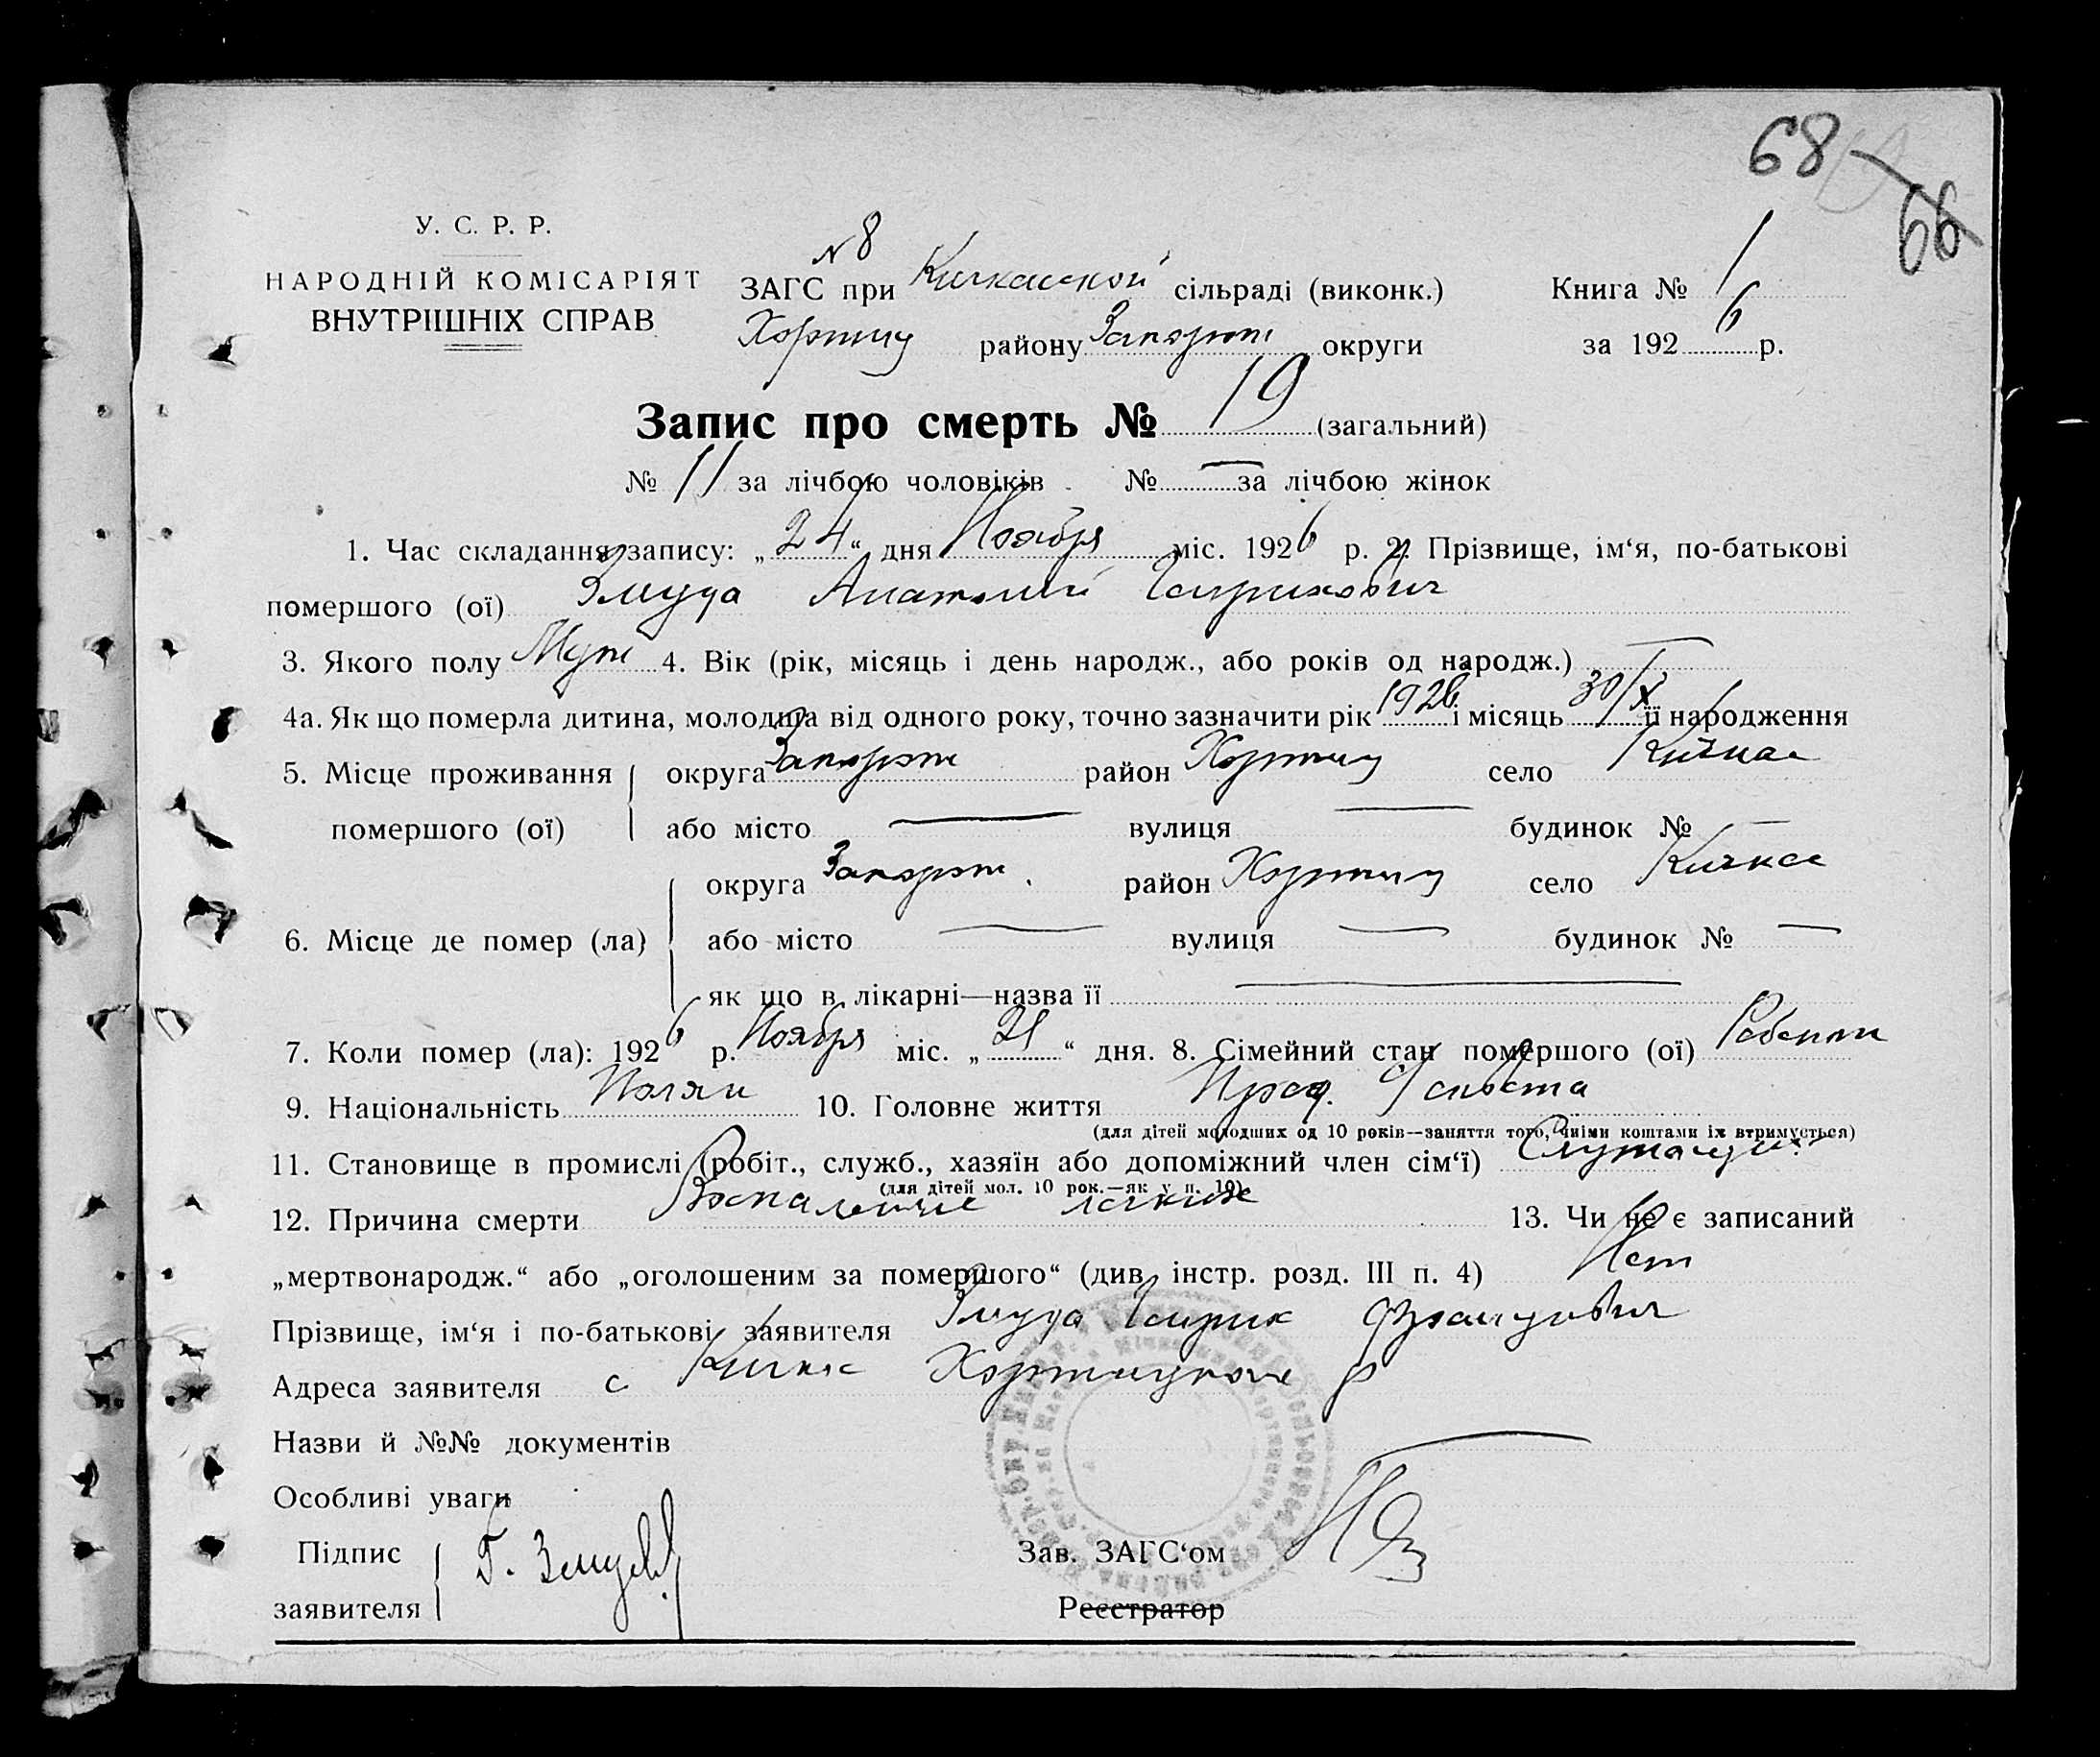 68
66
У. С. Р. Р.
НАРОДНІЙ КОМІСАРІЯТ
ВНУТРІШНІХ СПРАВ
N 8
ЗАГС при Кичкасской сільраді (виконк.)
Хортиц району Запорож округи
Книга № 1
за 1926 р.
Запис про смерть № 19 (загальний)
№ 11 за лічбою чоловіків № — за лічбою жінок
1. Час складання запису: „24“ дня Ноября міс. 1926 р. 2. Прізвище, ім‘я, по-батькові
помершого (ої) Змуда Анатолий Генрихович
3. Якого полу Муж 4. Вік (рік, місяць і день народж., або років од народж.) —
4а. Як що померла дитина, молодша від одного року, точно зазначити рік 1926 і місяць 30/X її народження
5. Місце проживання помершого (ої) округа Запорож район Хортиц село Кичкас
або місто — вулиця — будинок № —
6. Місце де помер (ла) округа Запорож. район Хортиц село Кичкас
або місто — вулиця — будинок № —
як що в лікарні—назва її —
7. Коли помер (ла): 1926 р. Ноября міс. „21“ дня. 8. Сімейний стан помершого (ої) Ребенок
9. Національність Поляк 10. Головне життя
(для дітей молодших од 10 років—заняття того, чиїми коштами їх втримується)
11. Становище в промислі (робіт., служб., хазяїн або допоміжний член сім‘ї) Служащий
(для дітей мол. 10 рок.—як у п. 10)
12. Причина смерти Воспаление легких 13. Чи не є записаний
„мертвонародж.“ або „оголошеним за помершого“ (див. інстр. розд. III п. 4) Нет
Прізвище, ім‘я і по-батькові заявителя Змуда Генрик Францович
Адреса заявителя с Кичкас Хортицкого р
Назви й №№ документів —
Особливі уваги
Підпис заявителя Г. Змуда
Зав. ЗАГС‘ом
Реєстратор